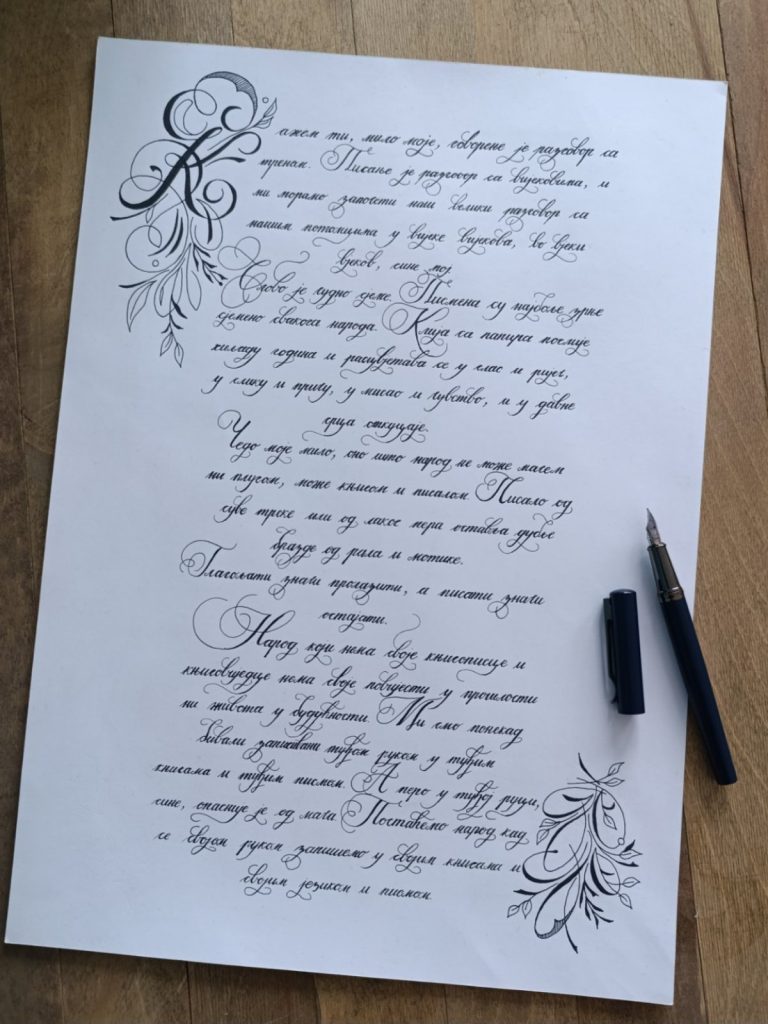 Кажем ти, мило моје, говорење је разговор са
треном. Писање је разговор са вијековима, и
ми морамо започети наш велики разговор са
нашим потомцима у вијеке вијекова, во вјеки
вјеков, сине мој.
Слово је чудно сјеме. Писмена су најбоље зрње
сјемено свакога народа. Клија са папира послије
хиљаду година и расцвјетава се у глас и ријеч,
у слику и причу, у мисао и чувство, и у давне
срца откуцаје.
Чедо моје мило, оно што народ не може мачем
ни плугом, може књигом и писалом. Писало од
суве трске или од лаког пера оставља дубље
бразде од рала и мотике.
Глагољати значи пролазити, а писати значи
остајати.
Народ који нема своје књигописце и
књиговједце нема своје повијести у прошлости
ни живота у будућности. Ми смо понекад
бивали записивани туђом руком у туђим
књигама и туђим писмом. А перо у туђој руци,
сине, опасније је од мача. Постаћемо народ кад
се својом руком запишемо у својим књигама и
својим језиком и писмом.